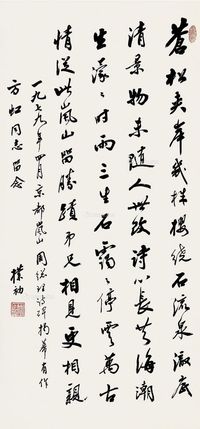 蒼松夾岸幾株櫻繞石流泉澈底
清景物未隨人世改詩心長共海潮
生濛々時雨三生石靄々停雲萬古
情從此嵐山留勝蹟弟兄相見更相親
一九七九年四月京都嵐山周總理詩碑揭幕有作
方虹同志留念
樸初